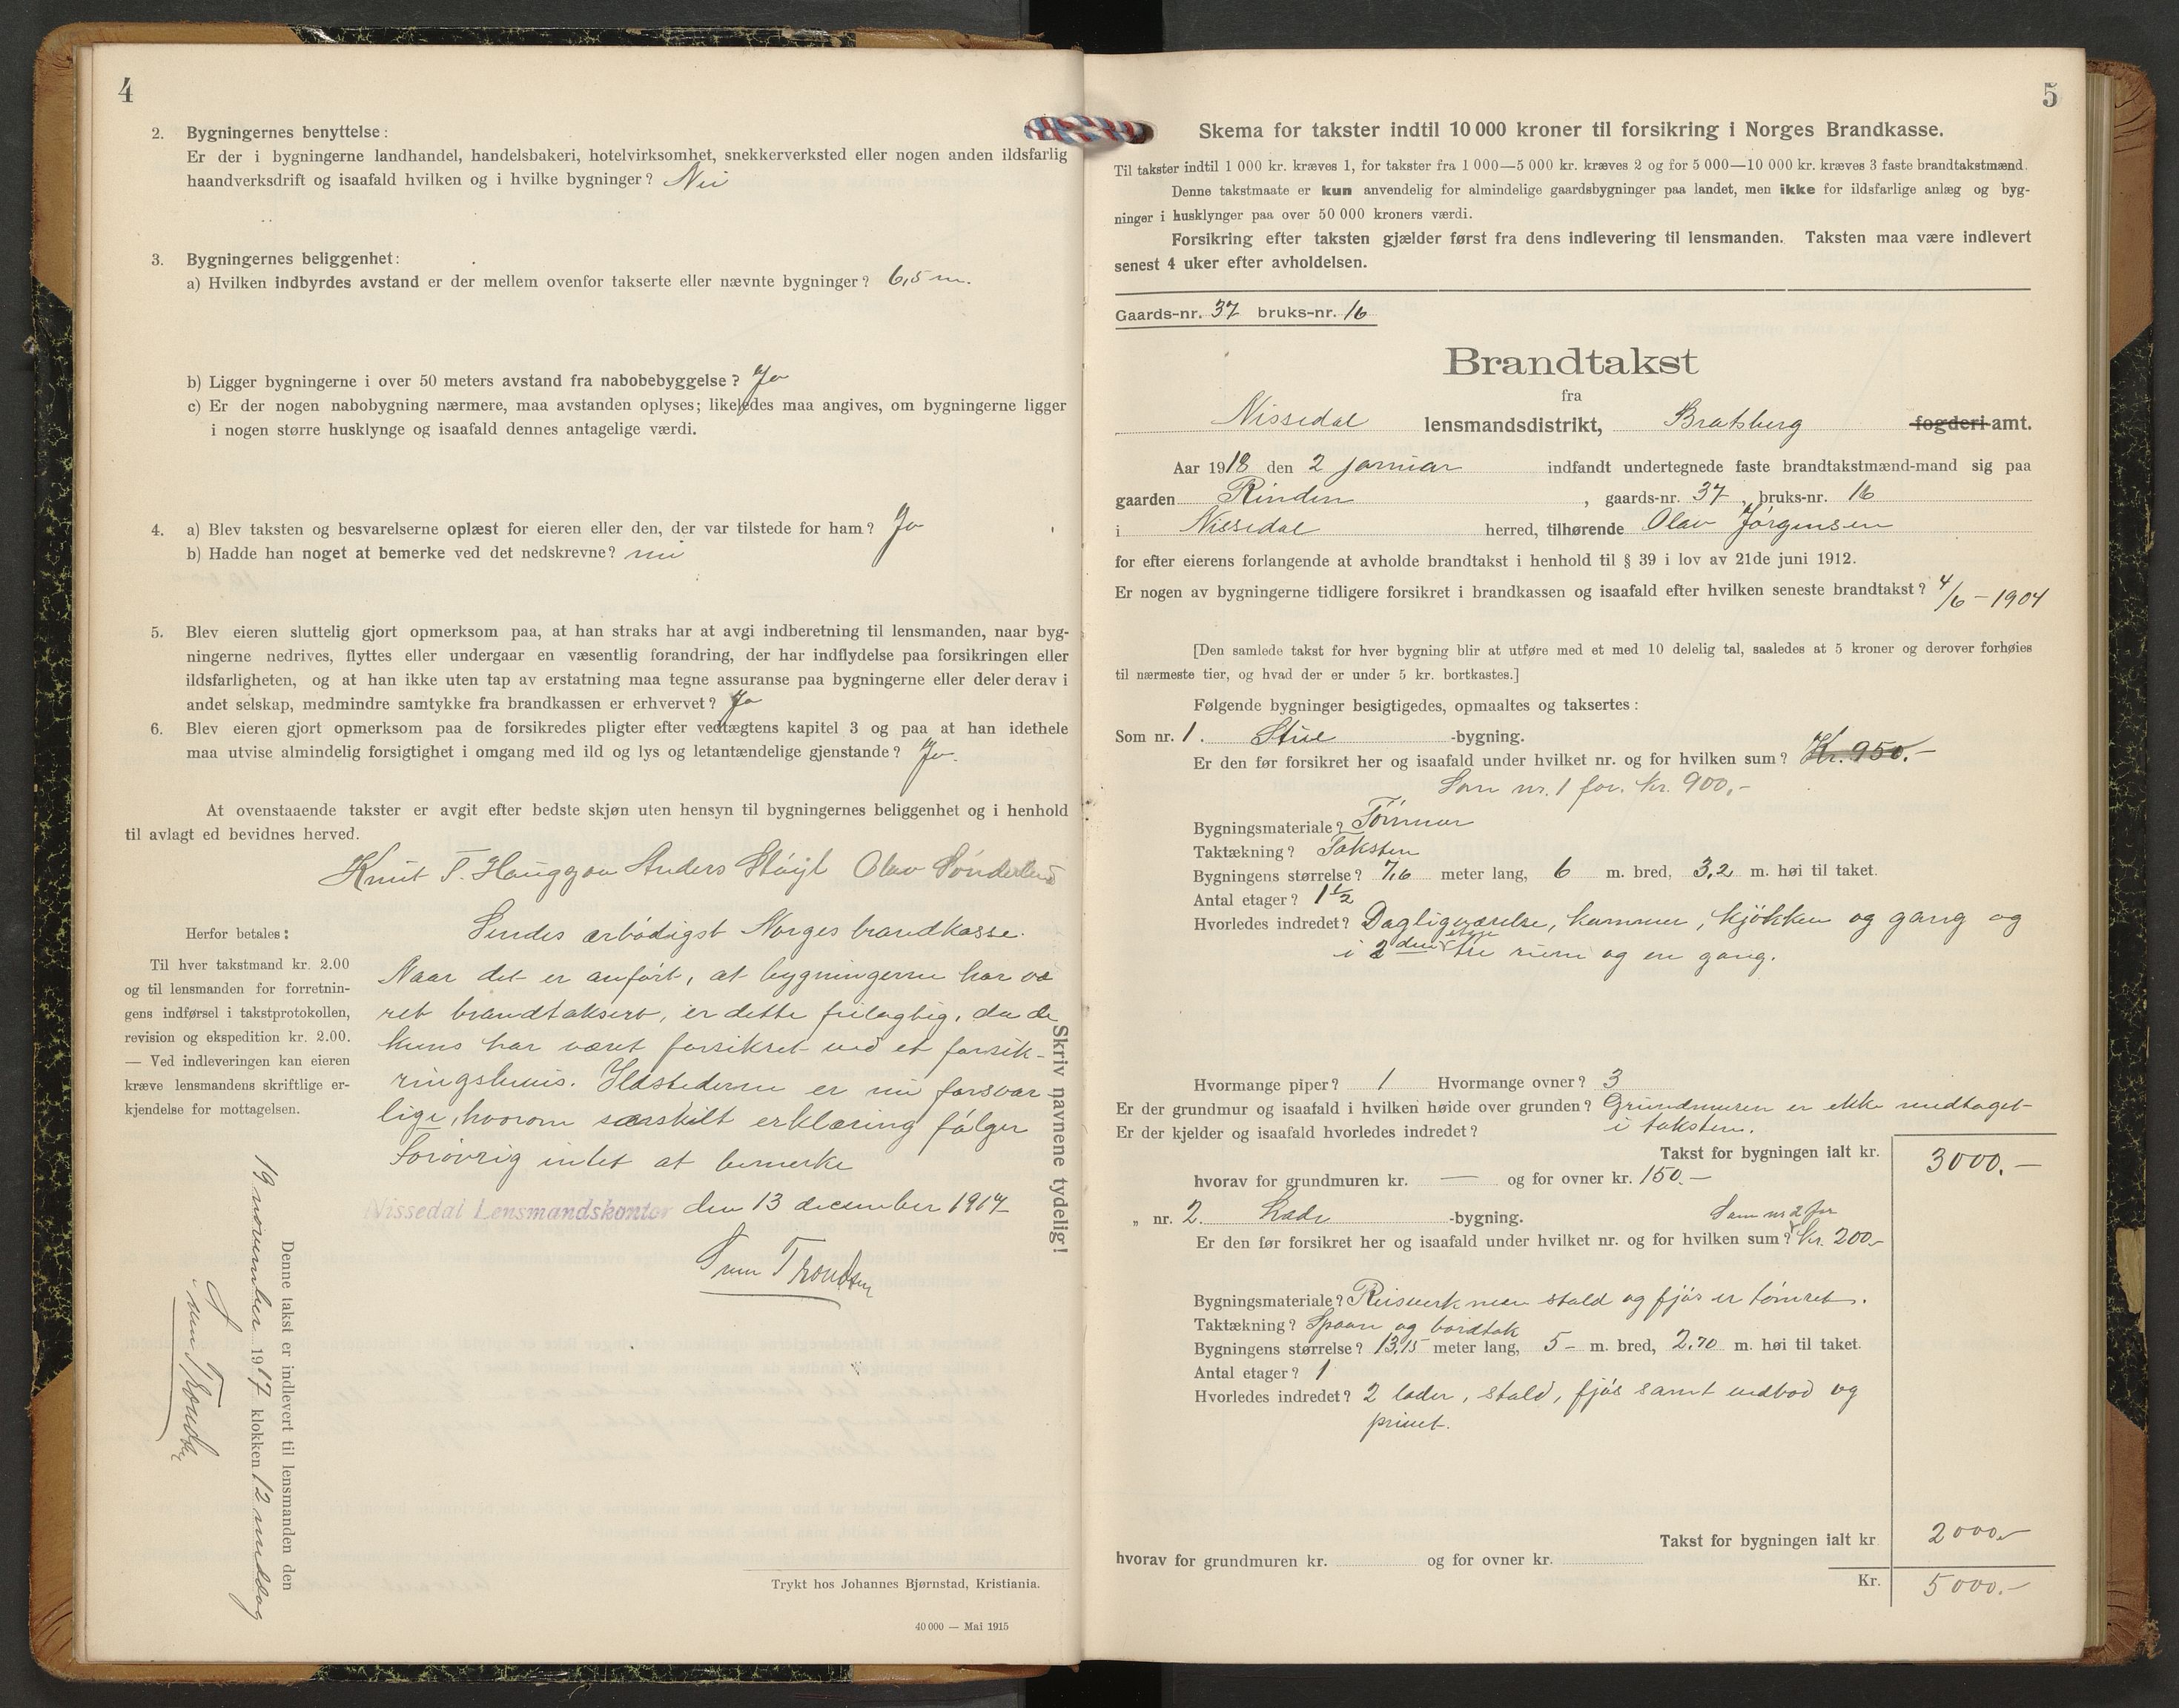 4
2. Bygningernes benyttelse:
Er der i bygningerne landhandel, handelsbakeri, hotelvirksomhet, snekkerverksted eller nogen anden ildsfarlig
haandverksdrift og isaafald hvilken og i hvilke bygninger? Nei
3. Bygningernes beliggenhet:
a) Hvilken indbyrdes avstand er der mellem ovenfor takserte eller nævnte bygninger? 6,5 m.
b) Ligger bygningerne i over 50 meters avstand fra nabobebyggelse? Ja
c) Er der nogen nabobygning nærmere, maa avstanden oplyses; likeledes maa angives, om bygningerne ligger
i nogen større husklynge og isaafald dennes antagelige værdi.
4. a) Blev taksten og besvarelserne oplæst for eieren eller den, der var tilstede for ham? Ja
b) Hadde han noget at bemerke ved det nedskrevne? nei
5. Blev eieren sluttelig gjort opmerksom paa, at han straks har at avgi indberetning til lensmanden, naar byg-
ningerne nedrives, flyttes eller undergaar en væsentlig forandring, der har indflydelse paa forsikringen eller
ildsfarligheten, og at han ikke uten tap av erstatning maa tegne assuranse paa bygningerne eller deler derav i
andet selskap, medmindre samtykke fra brandkassen er erhvervet? Ja
6. Blev eieren gjort opmerksom paa de forsikredes pligter efter vedtægtens kapitel 3 og paa at han idethele
maa utvise almindelig forsigtighet i omgang med ild og lys og letantændelige gjenstande? Ja.
At ovenstaaende takster er avgit efter bedste skjøn uten hensyn til bygningernes beliggenhet og i henhold
til avlagt ed bevidnes herved.
Knut T. Haugsjaa Anders Støyl Olav Sønderland
Herfor betales:
Til hver takstmand kr. 2.00
og til lensmanden for forretnin-
gens indførsel i takstprotokollen,
revision og ekspedition kr. 2.00.
— Ved indleveringen kan eieren
kræve lensmandens skriftlige er-
kjendelse for mottagelsen.
Sendes ærbødigst Norges brandkasse.
Naar det er anført, at bygningerne har væ
ret brandtaksert, er dette feilagtig, da de
kuns har været forsikret ved et forsik-
ringshuus. Ildstederne er nu forsvar-
lige, hvorom særskilt erklæring følger
Forøvrig intet at bemerke
Nissedal Lensmandskontor den 13 december 1917
Sven Trondsen
Skriv navnene tydelig!
Denne takst er indlevert til lensmanden den
19 november 1917 klokken 12 middag
Sven Trondsen
Trykt hos Johannes Bjørnstad, Kristiania.
40 000 — Mai 1915
5
Skema for takster indtil 10 000 kroner til forsikring i Norges Brandkasse.
Til takster indtil 1 000 kr. kræves 1, for takster fra 1 000—5 000 kr. kræves 2 og for 5 000—10 000 kr. kræves 3 faste brandtakstmænd.
Denne takstmaate er kun anvendelig for almindelige gaardsbygninger paa landet, men ikke for ildsfarlige anlæg og byg-
ninger i husklynger paa over 50 000 kroners værdi.
Forsikring efter taksten gjælder først fra dens indlevering til lensmanden. Taksten maa være indlevert
senest 4 uker efter avholdelsen.
Gaards-nr. 37 bruks-nr. 16
Brandtakst
fra
Nissedal lensmandsdistrikt, Bratsberg fogderi amt.
Aar 1918 den 2 januar indfandt undertegnede faste brandtakstmænd-mand sig paa
gaarden Rinden, gaards-nr. 37, bruks-nr. 16
i Nissedal herred, tilhørende Olav Jørgensen
for efter eierens forlangende at avholde brandtakst i henhold til § 39 i lov av 21de juni 1912.
Er nogen av bygningerne tidligere forsikret i brandkassen og isaafald efter hvilken seneste brandtakst? 4/6 – 1904
[Den samlede takst for hver bygning blir at utføre med et med 10 delelig tal, saaledes at 5 kroner og derover forhøies
til nærmeste tier, og hvad der er under 5 kr. bortkastes.]
Følgende bygninger besigtigedes, opmaaltes og taksertes:
Som nr. 1. Stue -bygning.
Er den før forsikret her og isaafald under hvilket nr. og for hvilken sum? Kr. 950.–
Som nr. 1 for kr. 900,-
Bygningsmateriale? Tømmer
Taktækning? Taksten
Bygningens størrelse? 7,6 meter lang, 6 m. bred, 3,2 m. høi til taket.
Antal etager? 1 1/2
Hvorledes indredet? Dagligværelse, kammer, kjøkken og gang og
i 2den etage tre rum og en gang.
Hvormange piper? 1 Hvormange ovner? 3
Er der grundmur og isaafald i hvilken høide over grunden? Grundmuren er ikke medtaget
Er der kjelder og isaafald hvorledes indredet? i taksten.
Takst for bygningen ialt kr. 3000.–
hvorav for grundmuren kr. — og for ovner kr. 150.–
„ nr. 2. Lade -bygning. Som nr 2 for
Er den før forsikret her og isaafald under hvilket nr. og for hvilken sum? kr. 200.-
Bygningsmateriale? Reisverk men stald og fjøs er tømret.
Taktækning? Spaan og bordtak
Bygningens størrelse? 13,15 meter lang, 5 – m. bred, 2.70 m. høi til taket.
Antal etager? 1
Hvorledes indredet? 2 lader, stald, fjøs samt vedbod og
privet.
Takst for bygningen ialt kr 2000.-
hvorav for grundmuren kr. og for ovner kr.
Kr. 5000.–